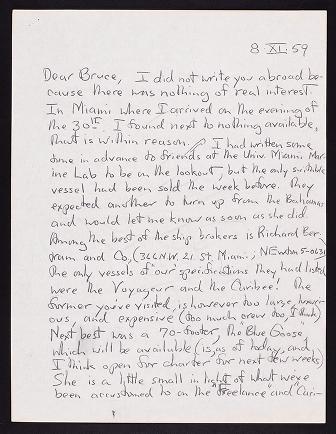 8 XI 59
Dear Bruce, I did not write you abroad be-
cause there was nothing of real interest.
In Miami where I arrived on the evening of
the 30th I found next to nothing available,
that is within reason. I had written some
time in advance to friends at the Univ. Miami Mar-
ine Lab to be on the lookout, but the only suitable
vessel had been sold the week before. They
expected another to turn up from the Bahamas
and would let me know as soon as she did.
Among the best of the ship brokers is Richard Ber-
tram and Co, (3660 N.W. 21 St. Miami; NEwton 5-
The only vessels of our specifications they had listed
were the Voyageur and the Caribee! The
former you've visited, is however too large, luxuri-
ous, and expensive (too much crew too, I think)
Next best was a 70-footer, the "Blue Goose"
which will be available (is, as of today, and
I think open for charter for next few weeks)
She is a little small in light of what we've
been accustomed to on the "Freelance" and Cari-